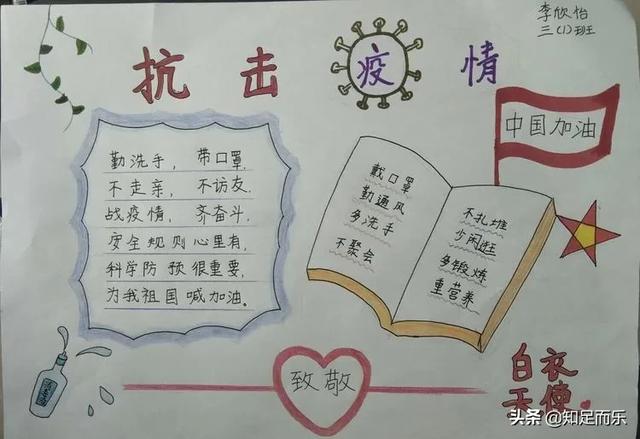 李欣怡
三(1)班
抗击疫情
中国加油
勤洗手，带口罩，
不走亲，不访友，
战疫情，齐奋斗，
安全规则心里有，
科学防预很重要，
为我祖国喊加油。
戴口罩
勤通风
多洗手
不聚会
不扎堆
少闲逛
多锻炼
重营养
致敬
白衣
天使
头条 @知足而乐